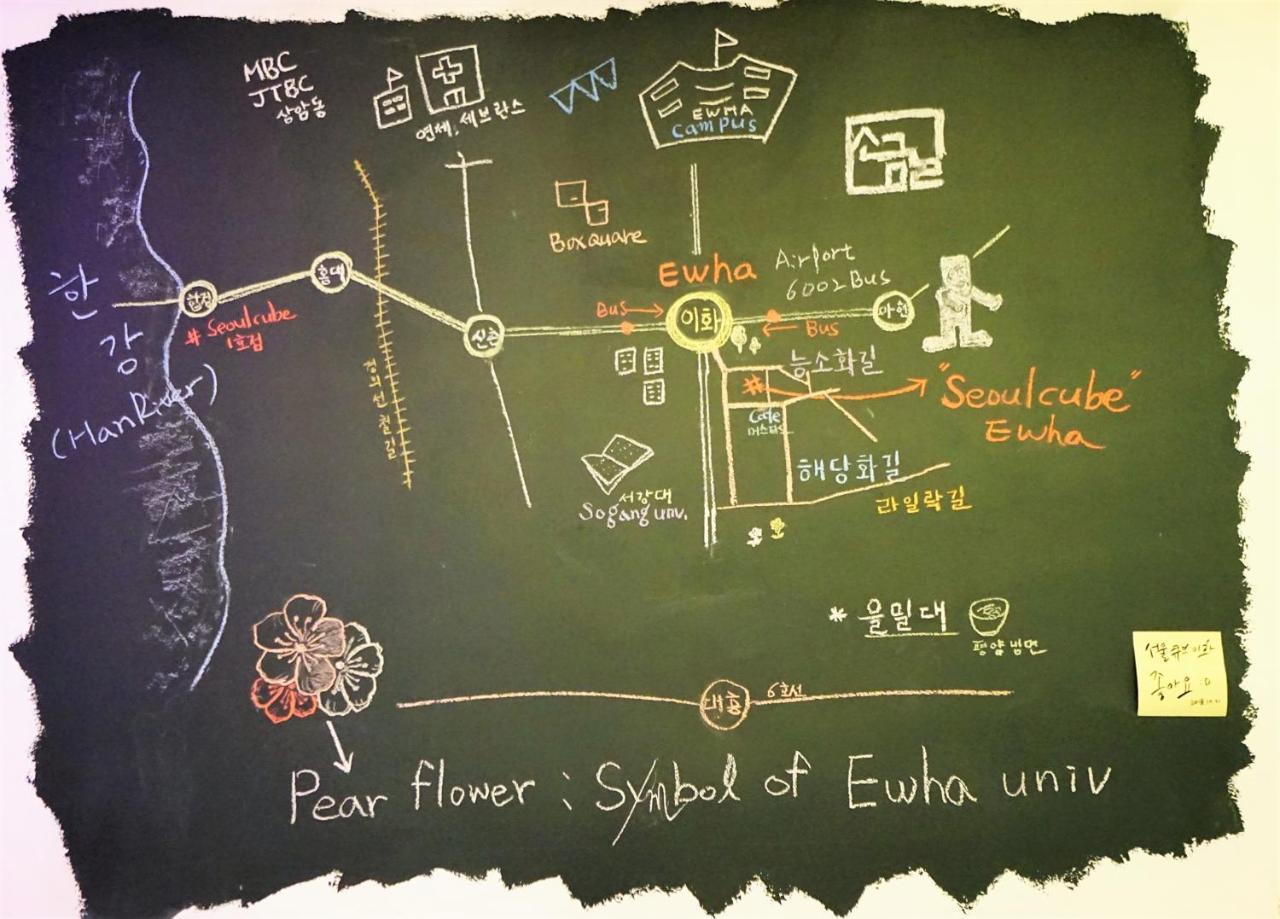 MBC
JTBC
상암동
연세, 세브란스
EWHA
campus
소금길
Boxquare
Ewha
Airport
6002 Bus
한
강
(Han River)
합정
# Seoulcube
1호점
홍대
신촌
Bus
이화
Bus
아현
경의선 철길
능소화길
"Seoulcube"
Ewha
Cafe
머스타드
해당화길
라일락길
서강대
Sogang univ.
* 을밀대
평양냉면
대흥
6호선
서울큐브이화
좋아요 :D
Pear flower : Symbol of Ewha univ